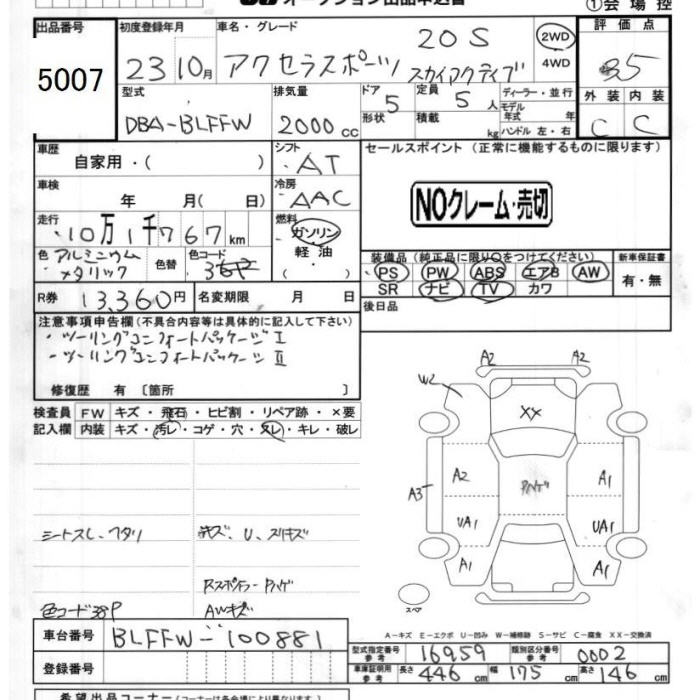 オークション出品申込書
①会場控
出品番号
5007
初度登録年月
23 10月
車名・グレード
アクセラスポーツ 20S スカイアクティブ
2WD
4WD
評価点
35
外装 内装
C C
型式
DBA-BLFFW
排気量
2000cc
ドア 5
形状
定員 5人
積載 kg
ディーラー・並行
モデル年式 年
ハンドル 左・右
車歴
自家用・( )
シフト
・AT
セールスポイント (正常に機能するものに限ります)
NOクレーム・売切
車検
年 月( 日)
冷房
・AAC
走行
10万1千767km
燃料
ガソリン
軽油
・( )
色 アルミニウムメタリック
色替
色コード
装備品(純正品に限り○をつけてください)
PS PW ABS エアB AW
SR ナビ TV カワ
新車保証書
有・無
R券 13,360円
名変期限 月 日
後日品
注意事項申告欄(不具合内容等は具体的に記入して下さい)
・ツーリングコンフォートパッケージ I
・ツーリングコンフォートパッケージ II
修復歴 有〔箇所 〕
検査員記入欄
FW キズ・飛石・ヒビ割・リペア跡・×要
内装 キズ・汚レ・コゲ・穴・スレ・キレ・破レ
A2 A2
W2
XX
A3 A2 A1
UA1 UA1
A1 A1
スペア
シートスレ、ヘタリ
色コード38P
Rスポイラーハゲ
AWキズ
A-キズ E-エクボ U-凹み W-補修跡 S-サビ C-腐食 XX-交換済
車台番号 BLFFW-100881
登録番号
型式指定番号 参考 16959
類別区分番号 参考 0002
車庫証明用 参考 長さ 446cm 幅 175cm 高さ 146cm
希望出品コーナー(コーナーは各会場により異なります)